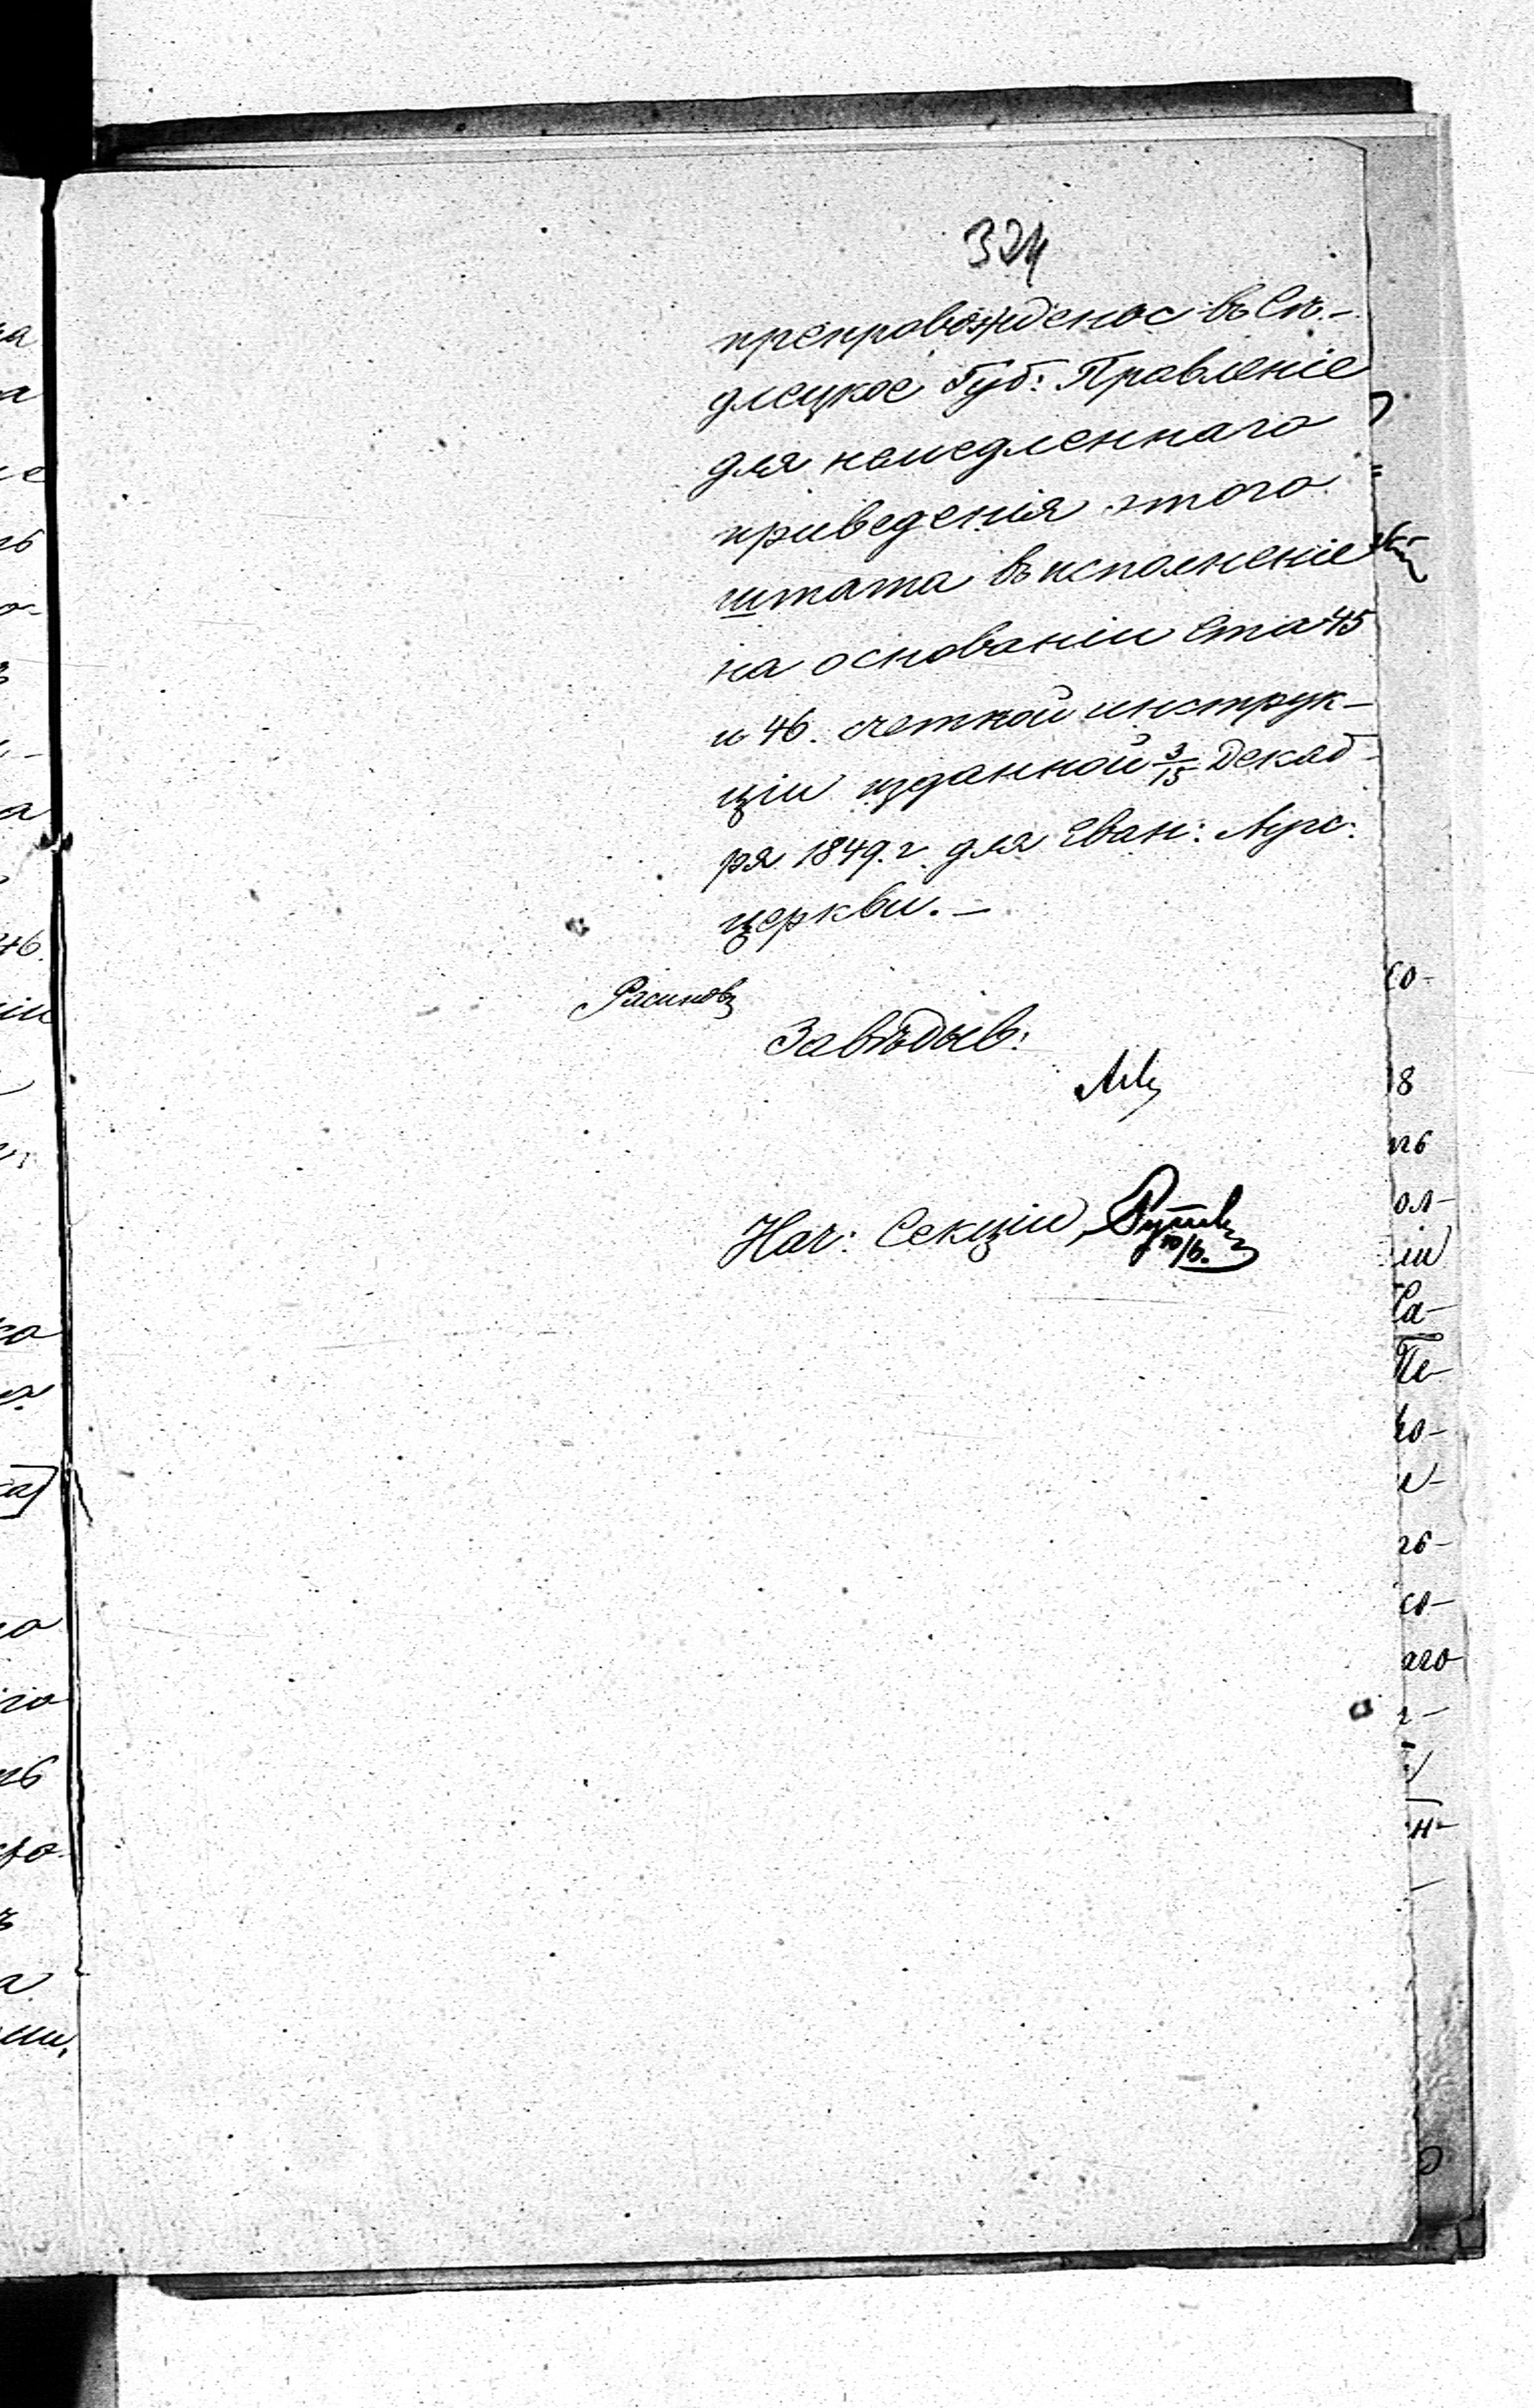 324
препровожденос въ Сѣ-
длецкое Губ: Правленіе
для немедленнаго
приведенія этого
штата въ исполненіе
на основаніи Ста 45
и 46. счетной инструк-
ціи изданной 3/15 Декаб-
ря 1849. г. для Еван: Аугс:
церкви. —
Завѣдыв:
Нач: Секціи
10/6.